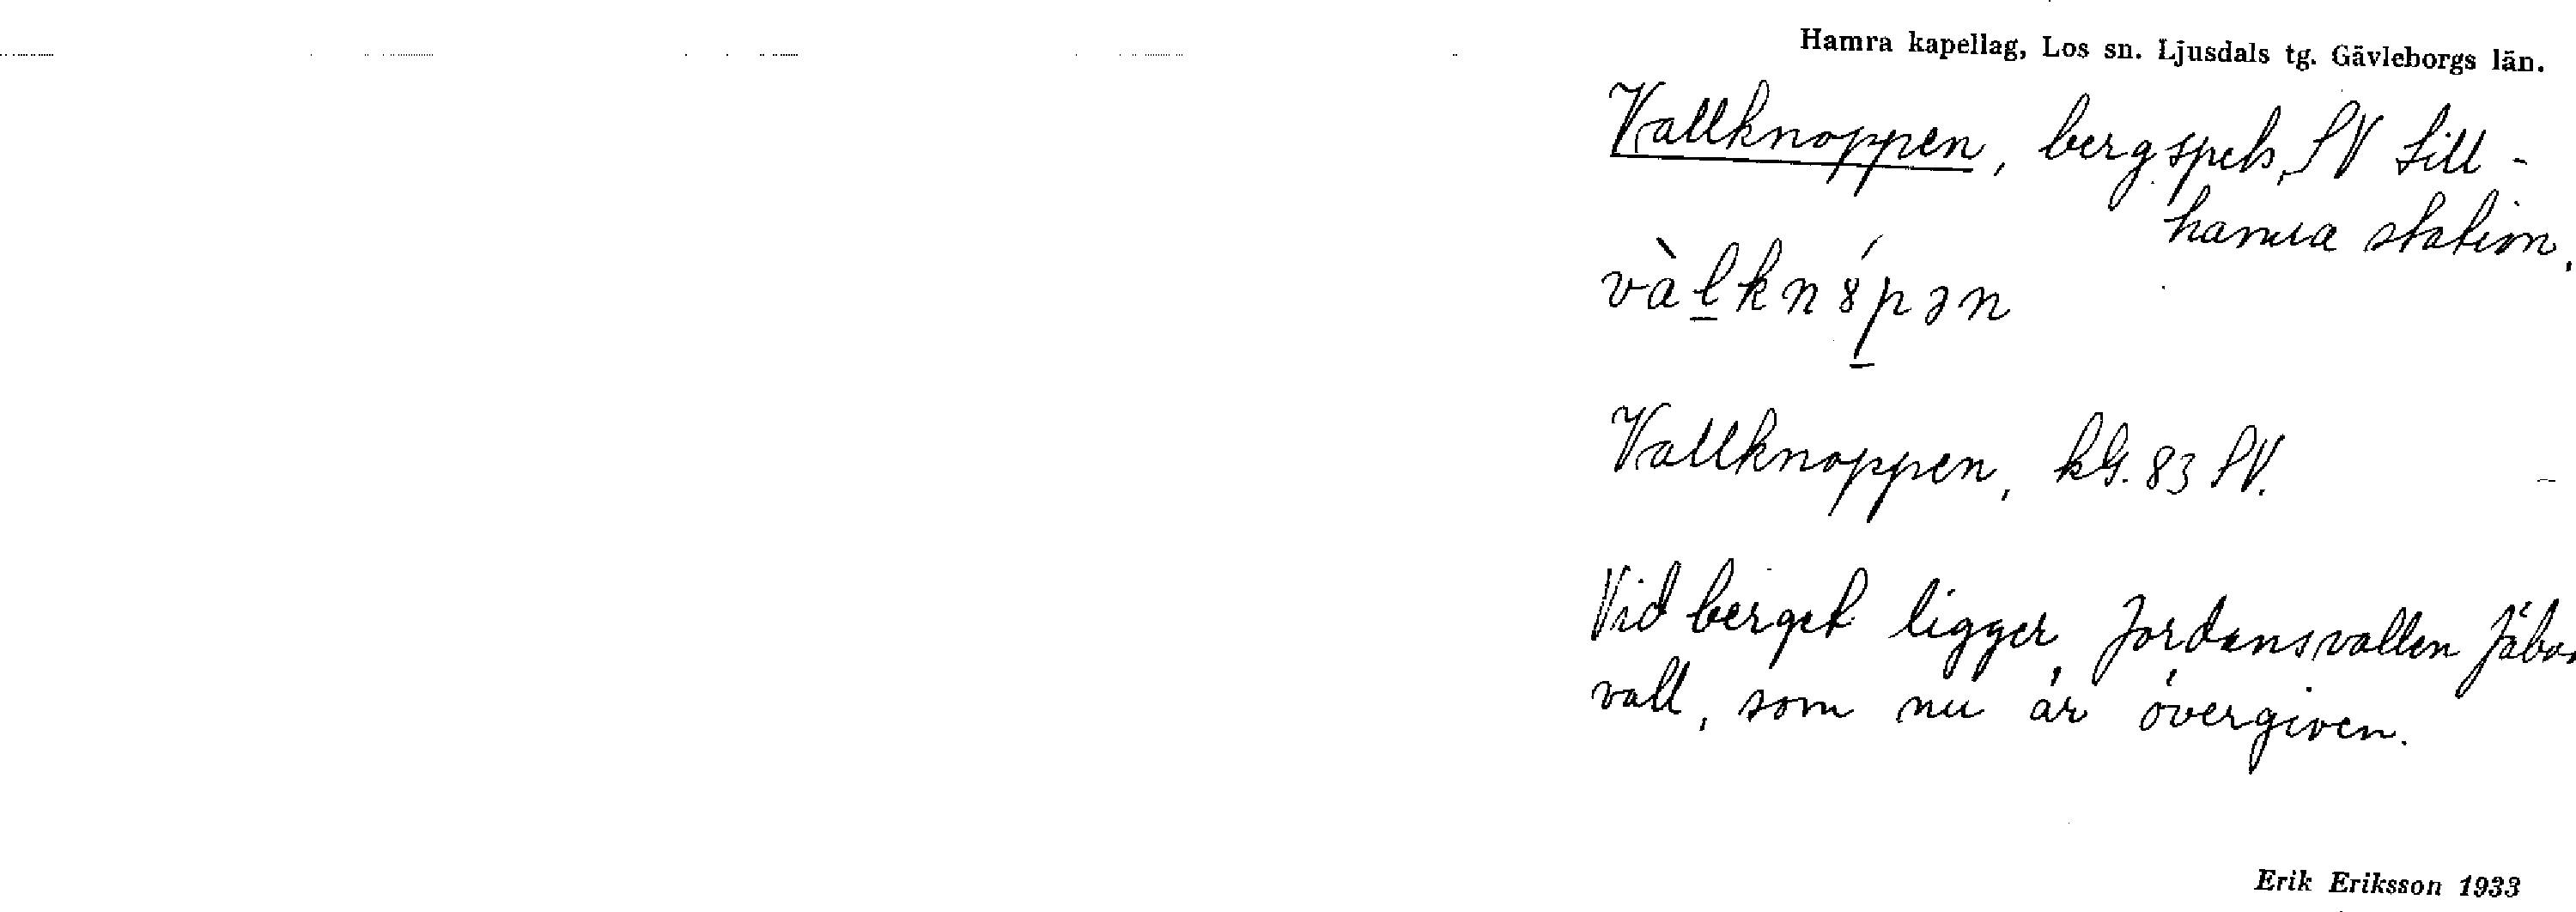 Hamra kapellag, Los sn. Ljusdals tg. Gävleborgs län.
Vallknoppen, bergspets, SV Lill-
hamra station.
vàl̲kn8́p̲ən
Vallknoppen, kG. 83 SV.
Vid berget ligger Jordansvallen fäbo
vall, som nu är övergiven.
Erik Eriksson 1933